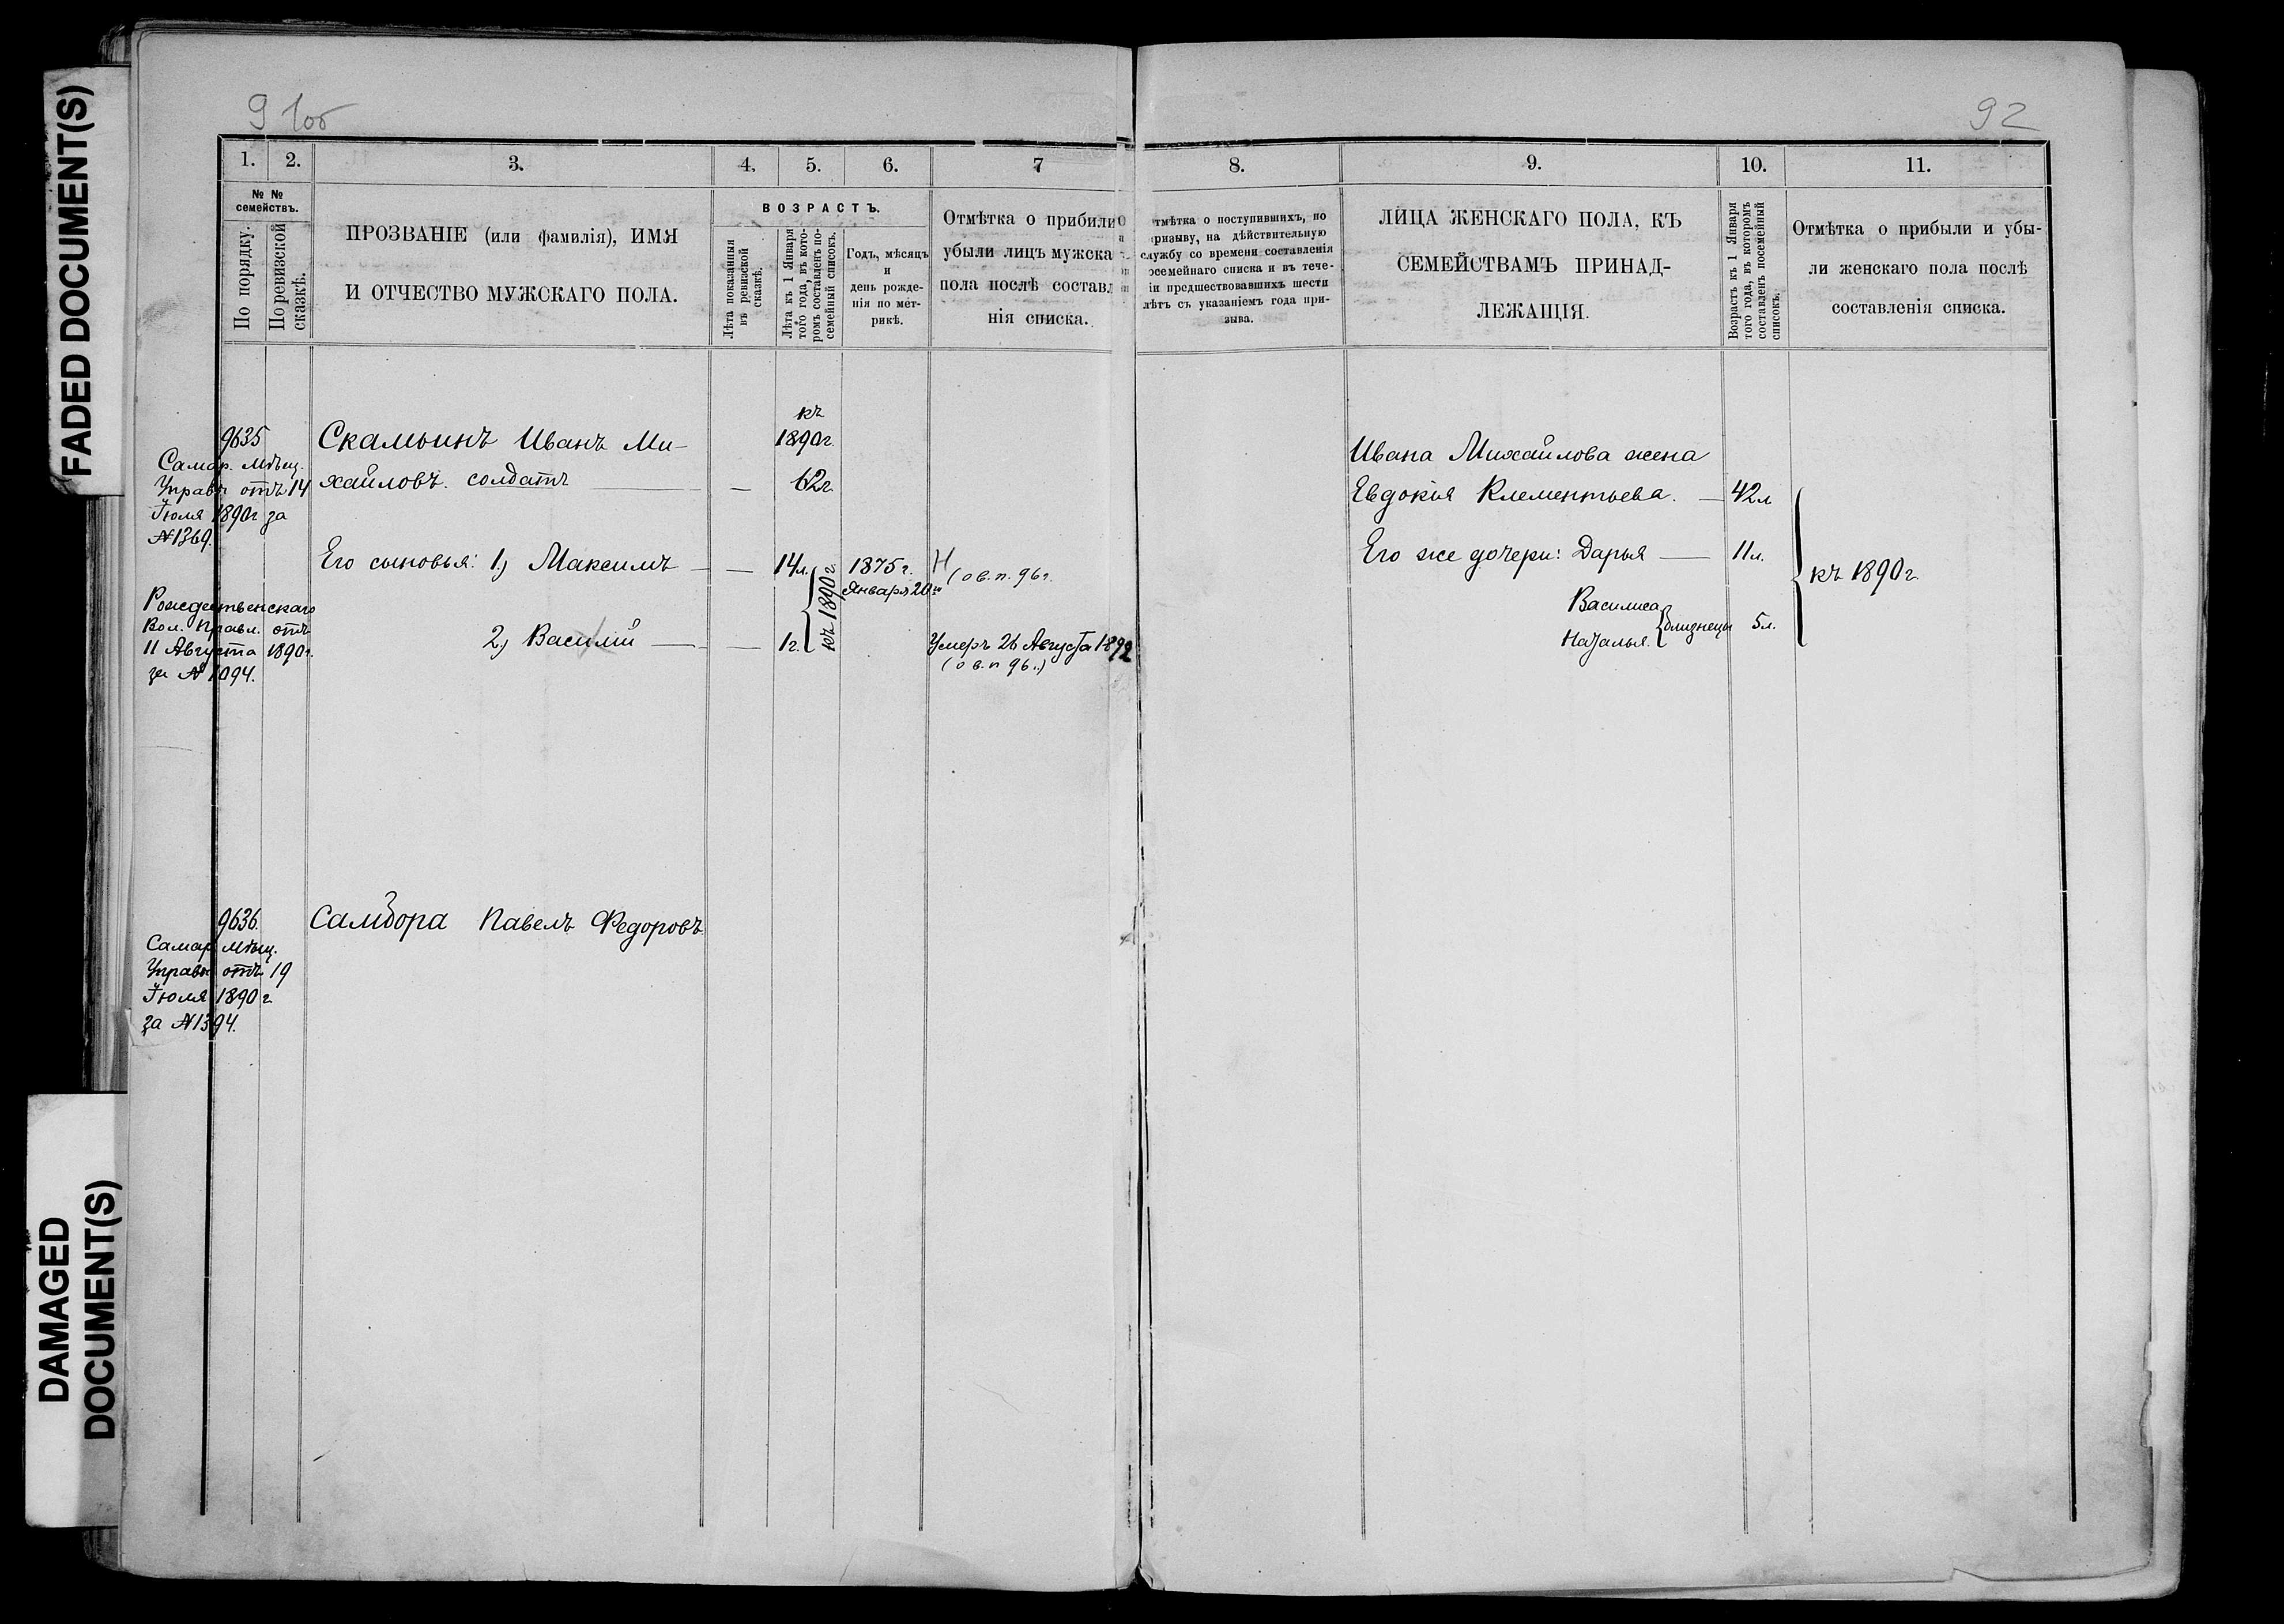 FADED DOCUMENT(S)
DAMAGED
DOCUMENT(S)
91об
1.
2.
3.
4.
5.
6.
7
№ №
семействъ.
По порядку.
По ревизской
сказкѣ.
ПРОЗВАНІЕ (или фамилія), ИМЯ
И ОТЧЕСТВО МУЖСКАГО ПОЛА.
ВОЗРАСТЪ.
Лѣта показанныя
въ ревизской
сказкѣ.
Лѣта къ 1 Января
того года, въ кото-
ромъ составленъ по-
семейный списокъ.
Годъ, мѣсяцъ
и
день рожде-
нія по мет-
рикѣ.
Отмѣтка о прибыли
убыли лицъ мужска
пола послѣ составл
нія списка.
9635
Самар. Мѣщ.
Управы отъ 14
Іюля 1890г за
№1369.
Рождественскаго
Вол. Правл. отъ
11 Августа 1890г.
за № 1094.
Скамьинъ Иванъ Ми-
хайловъ. солдатъ — —
къ
1890г.
62г.
Его сыновья: 1.) Максимъ — — 14л. 1875г.
Января 20го
Н
(о в. п. 96г.
2.) Василій — — 1г.
къ 1890г.
Умеръ 26 Августа 1892
(о в. п 96..)
9636.
Самар. Мѣщ.
Управы отъ 19
Іюля 1890г
за №1394.
Самбора Павелъ Федоровъ
92
8.
9.
10.
11.
тмѣтка о поступившихъ, по
призыву, на дѣйствительную
службу со времени составленія
осемейнаго списка и въ тече-
іи предшествовавшихъ шести
лѣтъ съ указаніемъ года при-
зыва.
ЛИЦА ЖЕНСКАГО ПОЛА, КЪ
СЕМЕЙСТВАМЪ ПРИНАД-
ЛЕЖАЩІЯ.
Возрастъ къ 1 Января
того года, въ которомъ
составленъ посемейный
списокъ.
Отмѣтка о прибыли и убы-
ли женскаго пола послѣ
составленія списка.
Ивана Михайлова жена
Евдокія Клементьева. — 42л
Его же дочери: Дарья — 11л.
Василиса
Наталья.
близнецы 5л.
къ 1890г